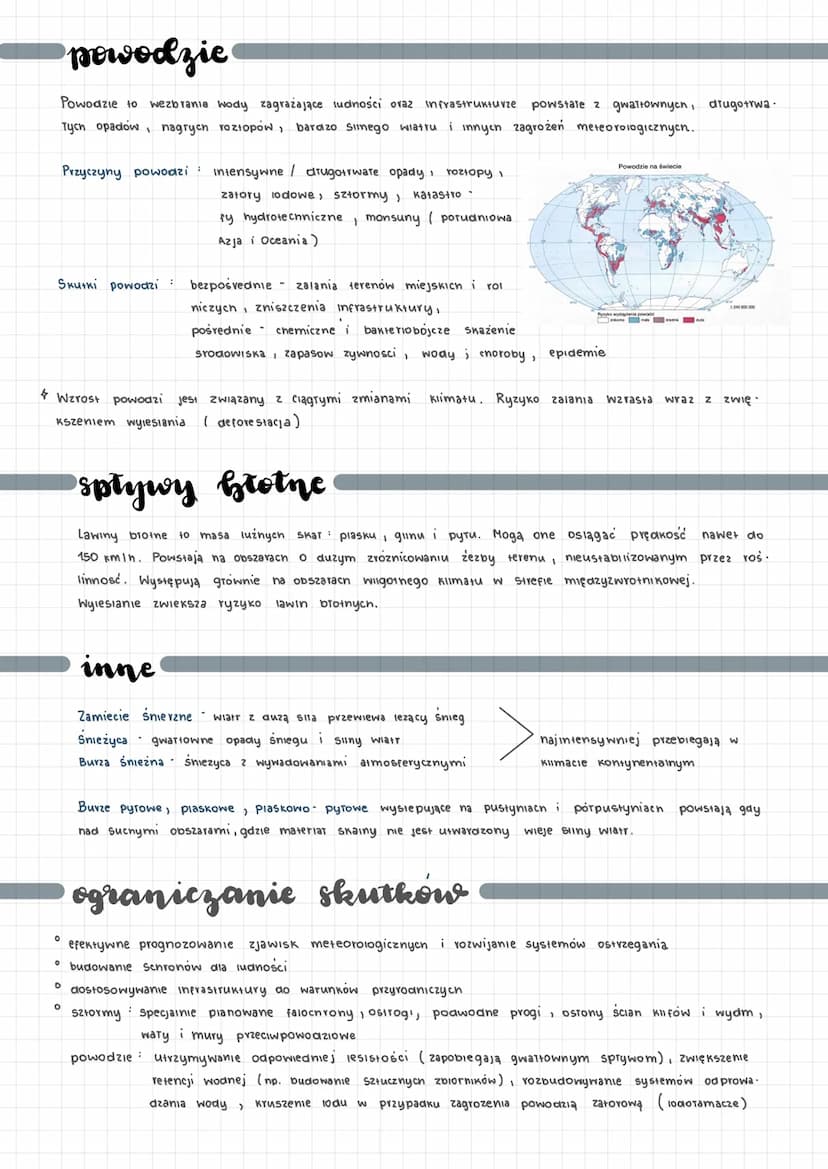 powodzie
Powodzie to wezbrania wody zagrażające ludności oraz infrastrukturze powstałe z gwałtownych, długotrwa-
łych opadów, nagłych roztopów, bardzo silnego wiatru i innych zagrożeń meteorologicznych.
Przyczyny powodzi: intensywne / długotrwałe opady, roztopy,
zatory lodowe, sztormy, katastro-
fy hydrotechniczne, monsuny (południowa
Azja i Oceania)
Powodzie na świecie
Skutki powodzi: bezpośrednie - zalania terenów miejskich i rol
niczych, zniszczenia infrastruktury,
pośrednie - chemiczne i bakteriobójcze skażenie
środowiska, zapasów żywności, wody; choroby, epidemie
Wzrost powodzi jest związany z ciągłymi zmianami klimatu. Ryzyko zalania wzrasta wraz z zwię-
kszeniem wylesiania (deforestacja)
spływy błotne
Lawiny błotne to masa luźnych skał: piasku, gliny i pyłu. Mogą one osiągać prędkość nawet do
150 km/h. Powstają na obszarach o dużym zróżnicowaniu źeźby terenu, nieustabilizowanym przez roś-
linność. Występują głównie na obszarach wilgotnego klimatu w strefie międzyzwrotnikowej.
Wylesianie zwiększa ryzyko lawin błotnych.
inne
Zamiecie śnieżne - wiatr z dużą siłą przewiewa leżący śnieg
Śnieżyca - gwałtowne opady śniegu i silny wiatr
Burza śnieżna - śnieżyca z wyładowaniami atmosferycznymi
najintensywniej przebiegają w
klimacie kontynentalnym
Burze pyłowe, piaskowe, piaskowo-pyłowe występujące na pustyniach i półpustyniach powstają gdy
nad suchymi obszarami, gdzie materiał skalny nie jest utwardzony wieje silny wiatr.
ograniczanie skutków
° efektywne prognozowanie zjawisk meteorologicznych i rozwijanie systemów ostrzegania
° budowanie schronów dla ludności
° dostosowywanie infrastruktury do warunków przyrodniczych
° sztormy: specjalnie planowane falochrony, ostrogi, podwodne progi, osłony ścian klifów i wydm,
wały i mury przeciwpowodziowe
powodzie: utrzymywanie odpowiedniej lesistości (zapobiegają gwałtownym spływom), zwiększenie
retencji wodnej (np. budowanie sztucznych zbiorników), rozbudowywanie systemów odprowa-
dzania wody, kruszenie lodu w przypadku zagrożenia powodzią zatorową (lodołamacze)